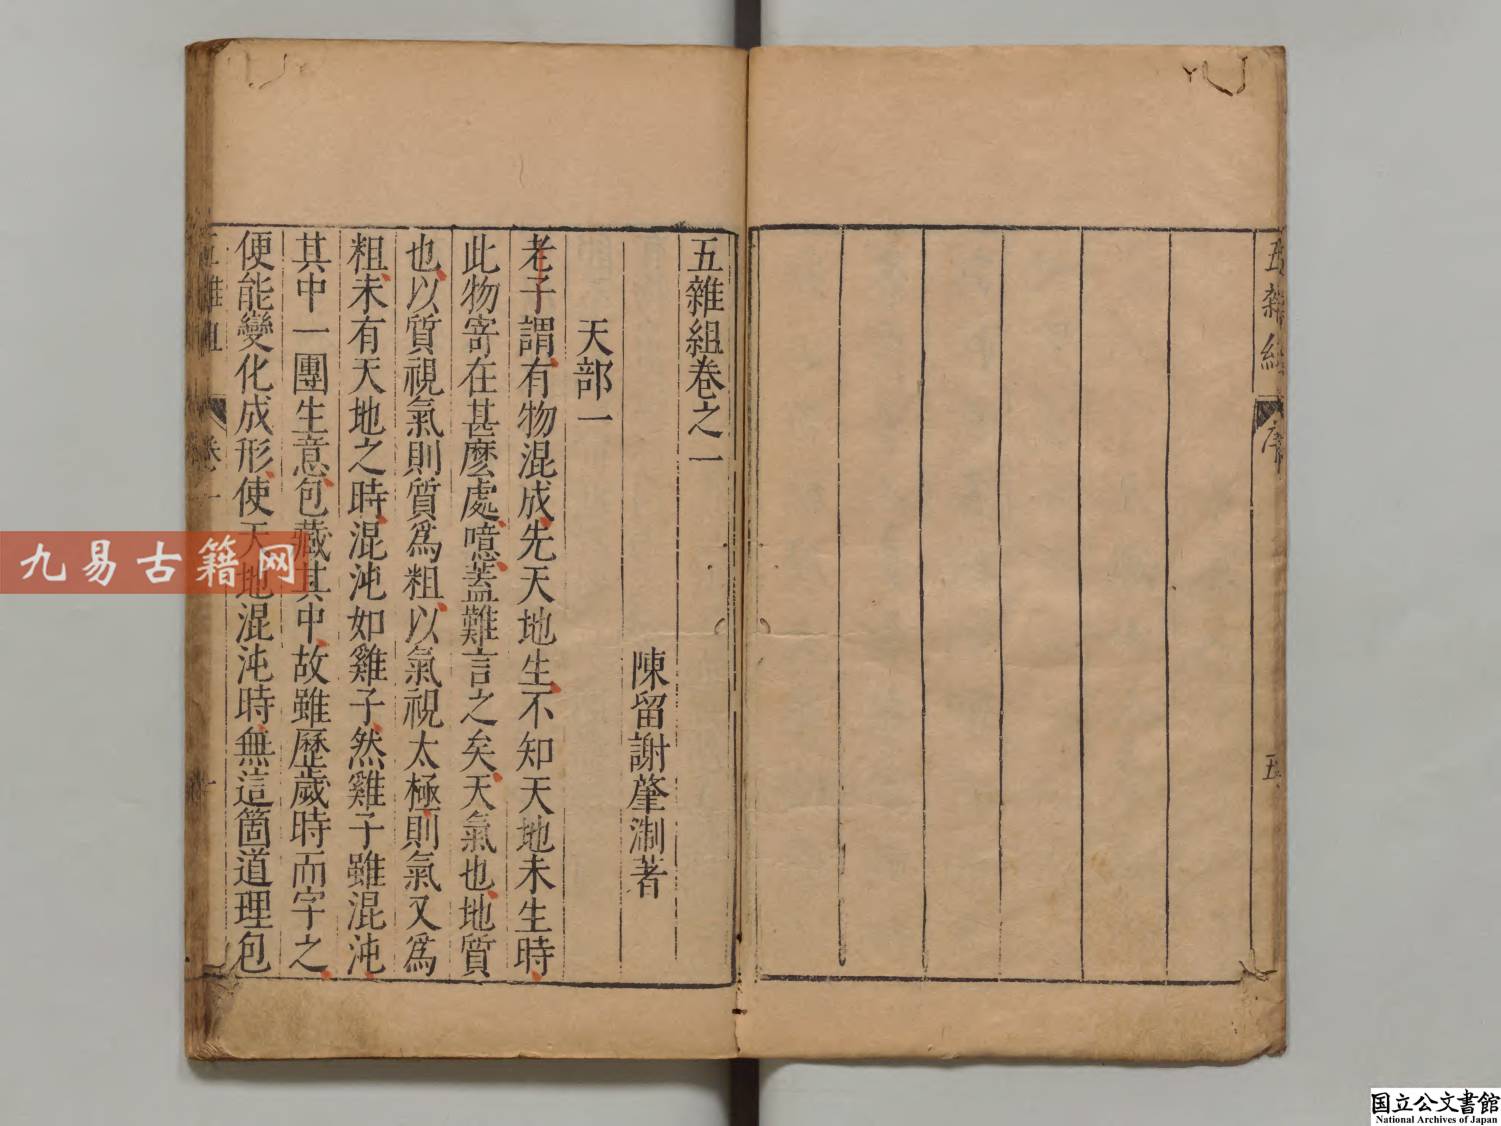 五雜組
序
五
五雜組卷之一
陳留謝肇淛著
天部一
老子謂有物混成先天地生不知天地未生時
此物寄在甚麼處噫蓋難言之矣天氣也地質
也以質視氣則質爲粗以氣視太極則氣又爲
粗未有天地之時混沌如雞子然雞子雖混沌
其中一團生意包藏其中故雖歷歲時而字之
便能變化成形使天地混沌時無這箇道理包
五雜組
卷一
一
九易古籍网
国立公文書館
National Archives of Japan